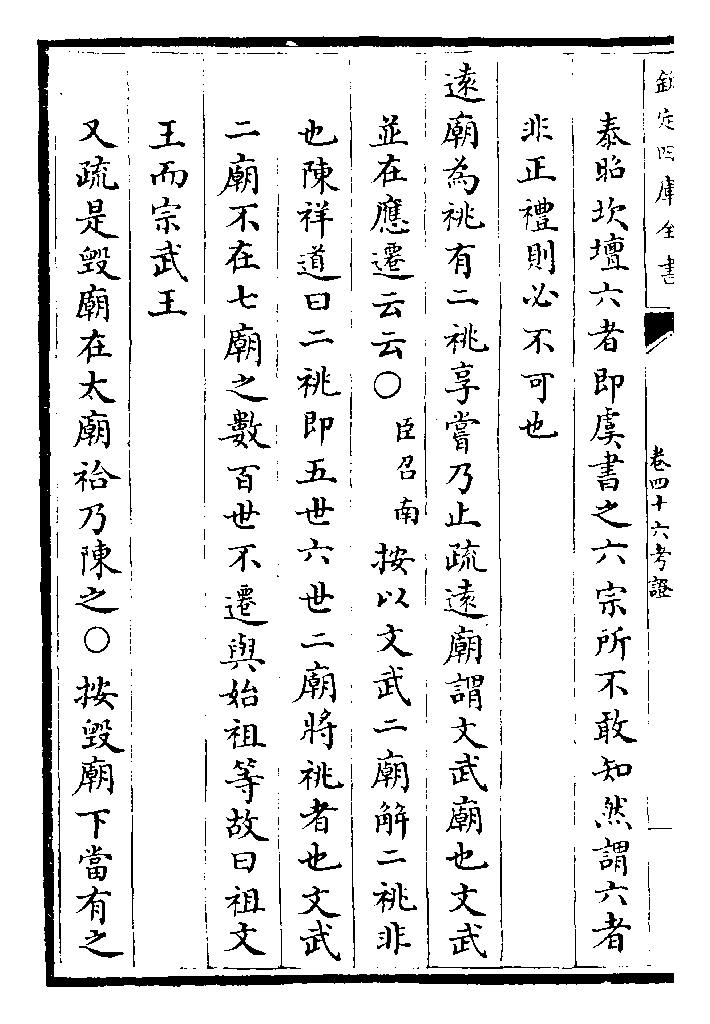 欽定四庫全書
卷四十六考證
泰昭坎壇六者即虞書之六宗所不敢知然謂六者
非正禮則必不可也
遠廟為祧有二祧享嘗乃止疏遠廟謂文武廟也文武
並在應遷云云〇臣召南按以文武二廟解二祧非
也陳祥道曰二祧即五世六世二廟將祧者也文武
二廟不在七廟之數百世不遷與始祖等故曰祖文
王而宗武王
又疏是毀廟在太廟祫乃陳之〇按毀廟下當有之